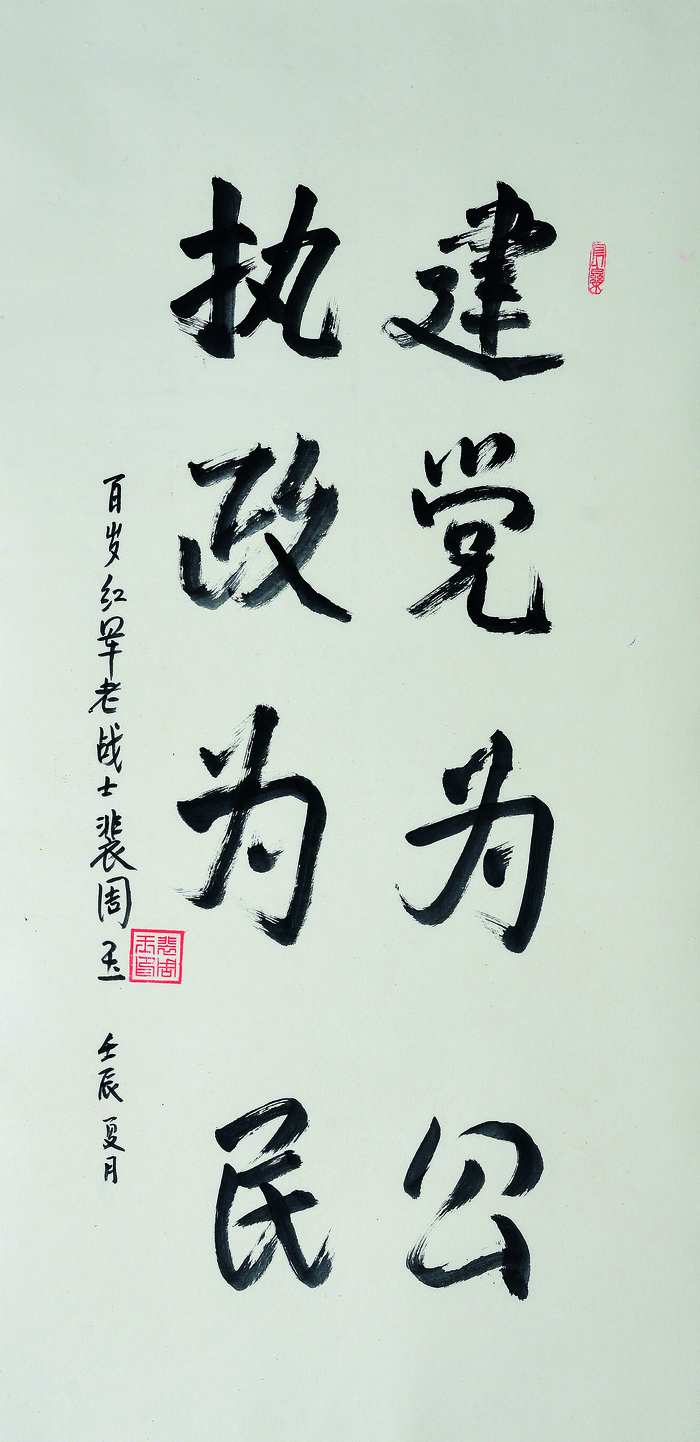 建党为公
执政为民
百岁红军老战士裴周玉
壬辰夏月
裴周玉印